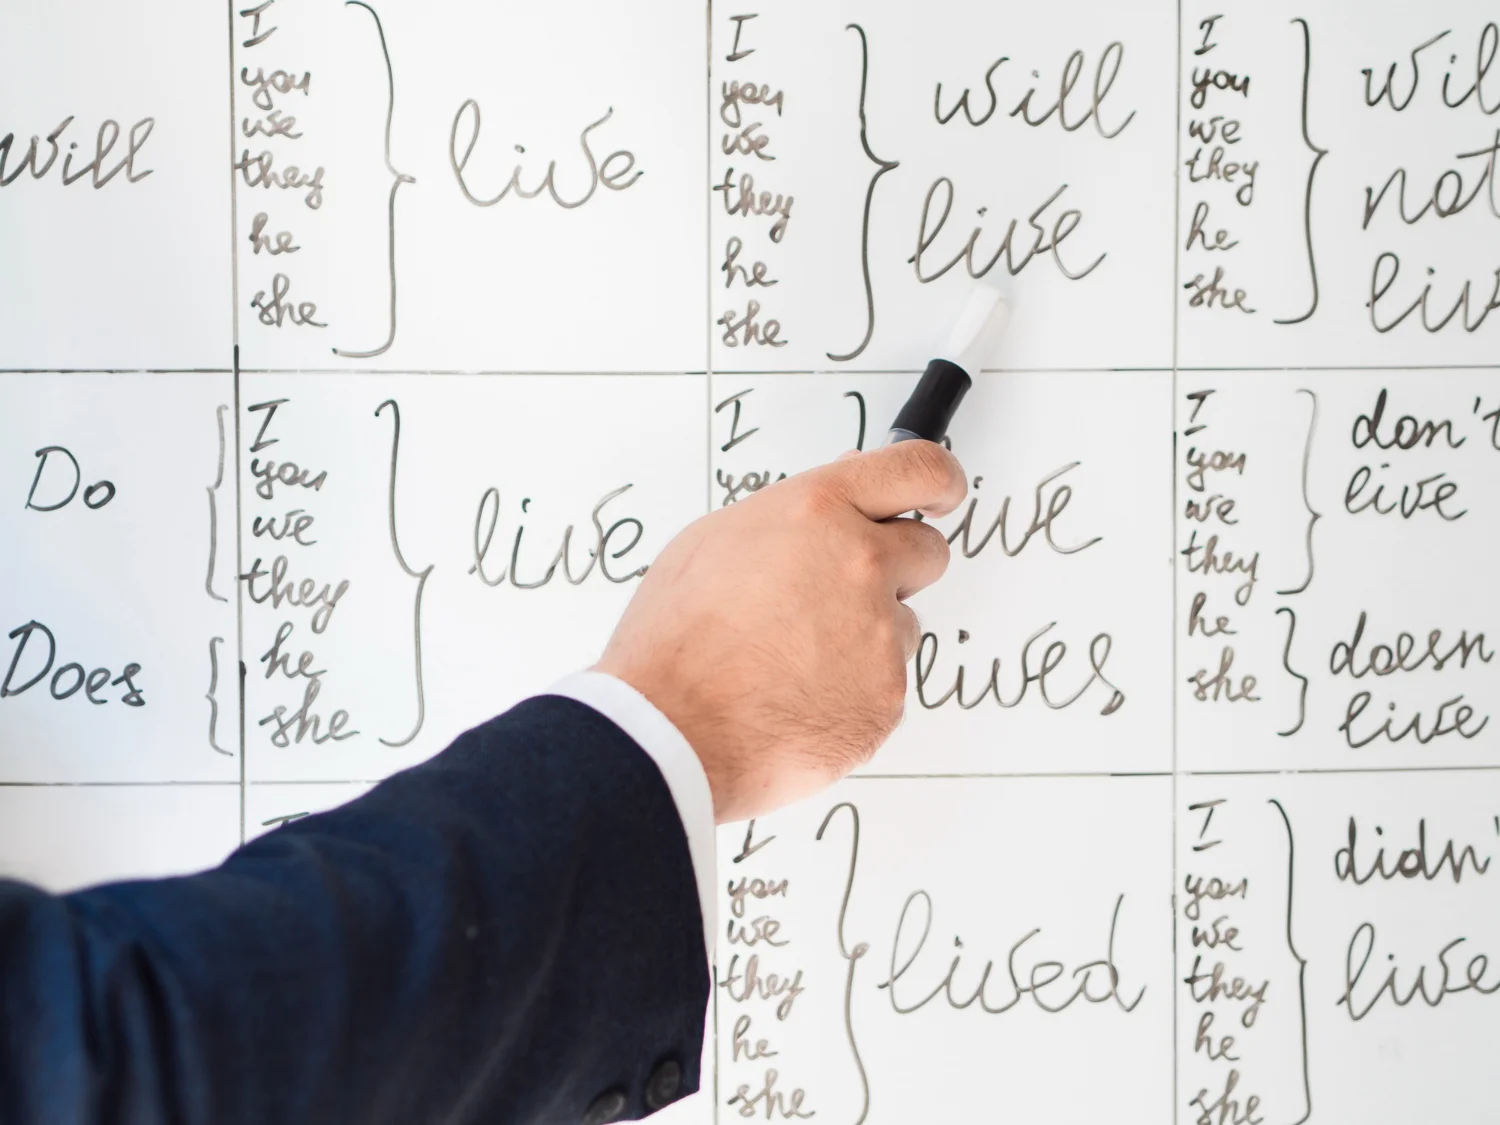 will
I
you
we
they
he
she
live
I
you
we
they
he
she
will
live
I
you
we
they
he
she
not
Do
Does
I
you
we
they
he
she
live
I
you
lives
I
you
we
they
he
she
don't
live
doesn
live
I
I
you
we
they
he
she
lived
I
you
we
they
he
she
didn'
live